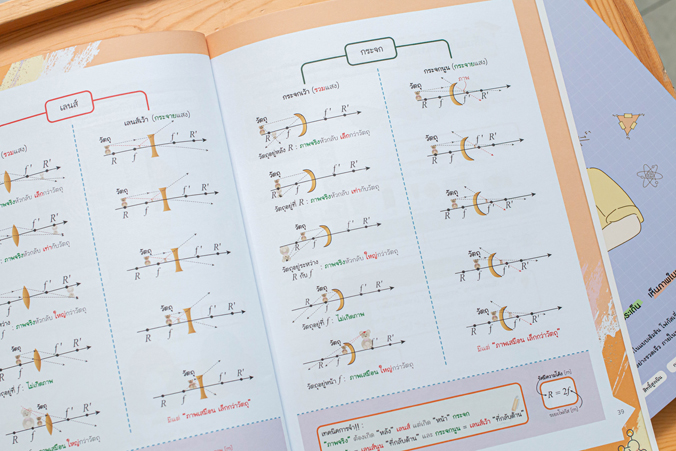 เลนส์
เลนส์เว้า (กระจายแสง)
รวมแสง)
วัตถุ
R f f' R'
ภาพจริงหัวกลับ เล็กกว่าวัตถุ
วัตถุ
R f f' R'
ภาพจริงหัวกลับ เท่ากับวัตถุ
วัตถุ
R f f' R'
ภาพจริงหัวกลับ ใหญ่กว่าวัตถุ
วัตถุ
R f f' R'
ไม่เกิดภาพ
วัตถุ
R f f' R'
มีแต่ "ภาพเสมือน เล็กกว่าวัตถุ"
กระจก
กระจกเว้า (รวมแสง)
วัตถุ
R f f' R'
วัตถุอยู่หลัง R : ภาพจริงหัวกลับ เล็กกว่าวัตถุ
วัตถุ
R f f' R'
วัตถุอยู่ที่ R : ภาพจริงหัวกลับ เท่ากับวัตถุ
วัตถุ
R f f' R'
วัตถุอยู่ระหว่าง
R กับ f : ภาพจริงหัวกลับ ใหญ่กว่าวัตถุ
วัตถุ
R f f' R'
วัตถุอยู่ที่ f : ไม่เกิดภาพ
วัตถุ
R f f' R'
วัตถุอยู่หน้า f : ภาพเสมือน ใหญ่กว่าวัตถุ
กระจกนูน (กระจายแสง)
ภาพ
วัตถุ
R f f' R'
วัตถุ
R f f' R'
วัตถุ
R f f' R'
วัตถุ
R f f' R'
วัตถุ
R f f' R'
มีแต่ "ภาพเสมือน เล็กกว่าวัตถุ"
เทคนิคการจำ!! :
"ภาพจริง" ต้องเกิด "หลัง" เลนส์ แต่เกิด "หน้า" กระจก
"ที่กลับด้าน" และ กระจกนูน = เลนส์เว้า "ที่กลับด้าน"
รัศมีความโค้ง [m]
R = 2f
39